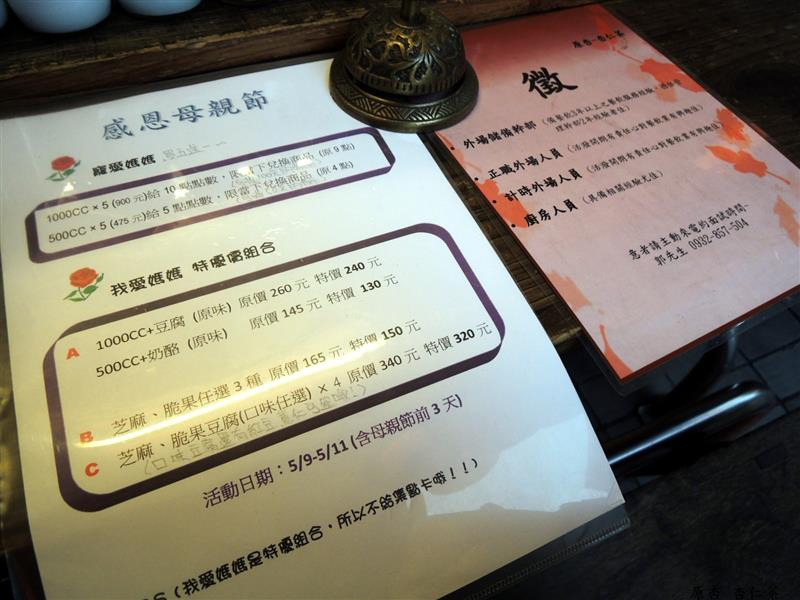 感恩母親節
寵愛媽媽 買五送一
1000CC × 5 (900 元)給 10 點點數，限當下兌換商品 (原 9 點)
500CC × 5 (475 元)給 5 點點數，限當下兌換商品 (原 4 點)
我愛媽媽 特優價組合
A 1000CC+豆腐 (原味) 原價 260 元 特價 240 元
500CC+奶酪 (原味) 原價 145 元 特價 130 元
B 芝麻、脆果任選 3 種 原價 165 元 特價 150 元
C 芝麻、脆果豆腐(口味任選) × 4 原價 340 元 特價 320 元
活動日期：5/9-5/11 (含母親節前 3 天)
(我愛媽媽是特優組合，所以不給集點卡喲！！)
徵
· 外場儲備幹部
· 正職外場人員 (活潑開朗有責任心對餐飲業有興趣佳)
· 計時外場人員 (活潑開朗有責任心對餐飲業有興趣佳)
· 廚房人員 (具備相關經驗尤佳)
意者請主動來電約面試時間-
郭先生 0932-857-504